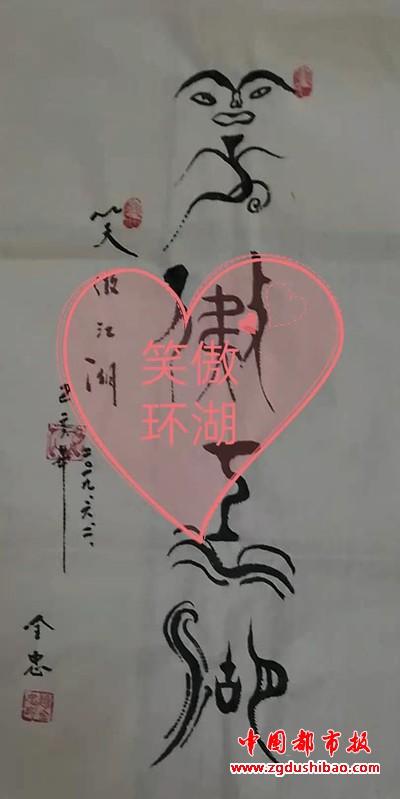 笑傲江湖
笑傲江湖
二〇一九.六.二.
全忠
笑傲
环湖
中国都市报
www.zgdushibao.com